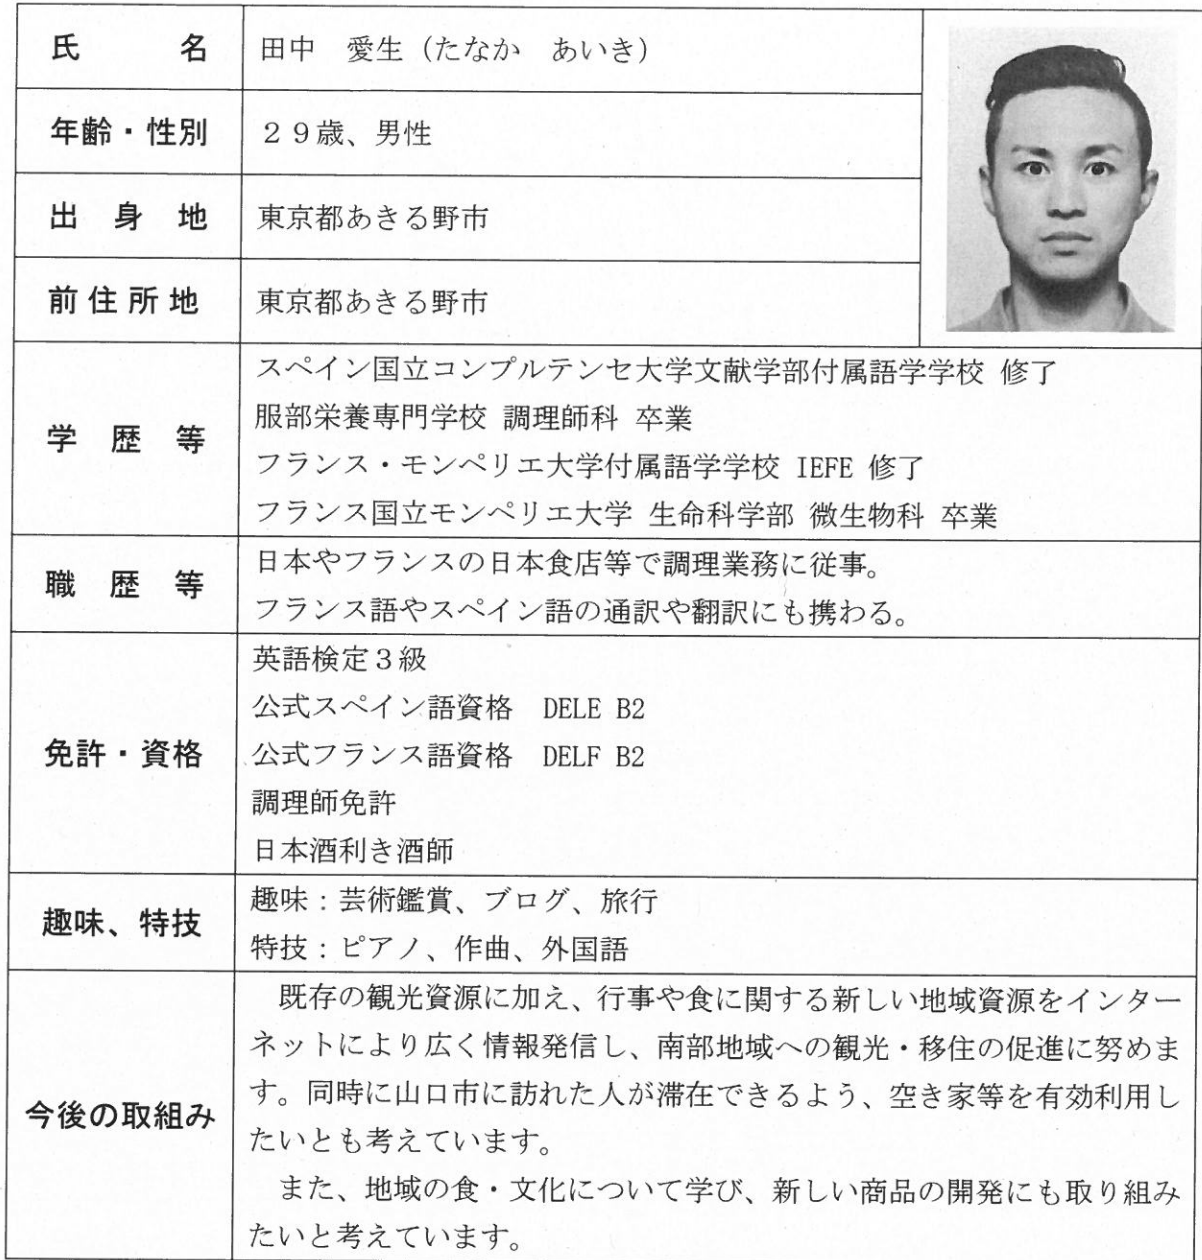 氏　　名　田中　愛生（たなか　あいき）
年齢・性別　２９歳、男性
出　身　地　東京都あきる野市
前住所地　東京都あきる野市
学　歴　等
スペイン国立コンプルテンセ大学文献学部付属語学学校 修了
服部栄養専門学校 調理師科 卒業
フランス・モンペリエ大学付属語学学校 IEFE 修了
フランス国立モンペリエ大学 生命科学部 微生物科 卒業
職　歴　等
日本やフランスの日本食店等で調理業務に従事。
フランス語やスペイン語の通訳や翻訳にも携わる。
免許・資格
英語検定３級
公式スペイン語資格　DELE B2
公式フランス語資格　DELF B2
調理師免許
日本酒利き酒師
趣味、特技
趣味：芸術鑑賞、ブログ、旅行
特技：ピアノ、作曲、外国語
今後の取組み
　既存の観光資源に加え、行事や食に関する新しい地域資源をインター
ネットにより広く情報発信し、南部地域への観光・移住の促進に努めま
す。同時に山口市に訪れた人が滞在できるよう、空き家等を有効利用し
たいとも考えています。
　また、地域の食・文化について学び、新しい商品の開発にも取り組み
たいと考えています。